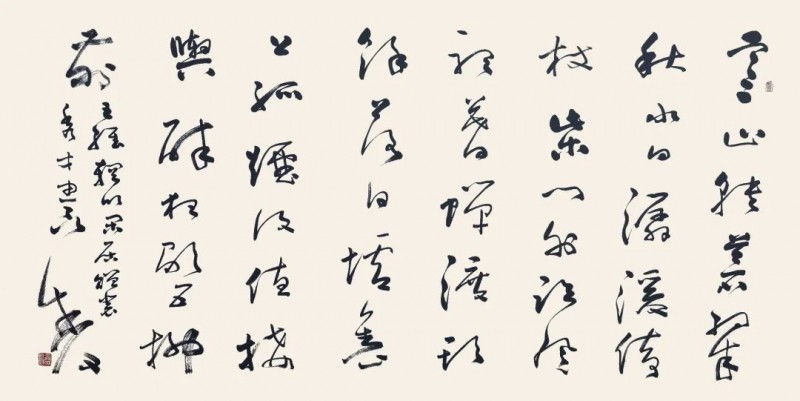 寒山轉蒼翠
秋水日潺湲倚
杖柴門外臨風
聽暮蟬渡頭
餘落日墟里
上孤煙復值接
輿醉狂歌五柳
前
王維輞川閑居贈裴
秀才迪